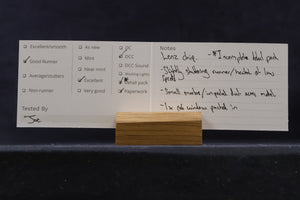 Excellent/smooth
Good Runner
Average/stutters
Non-runner
Tested By
Joe
As new
Mint
Near mint
Excellent
Very good
DC
DCC
DCC Sound
Working Lights
Small pack
Paperwork
Notes
Lenz chip. - *Incomplete detail pack
- Slightly stuttering runner/hesitant at low speed
- Small marks/ unpainted
- 1x window packed in